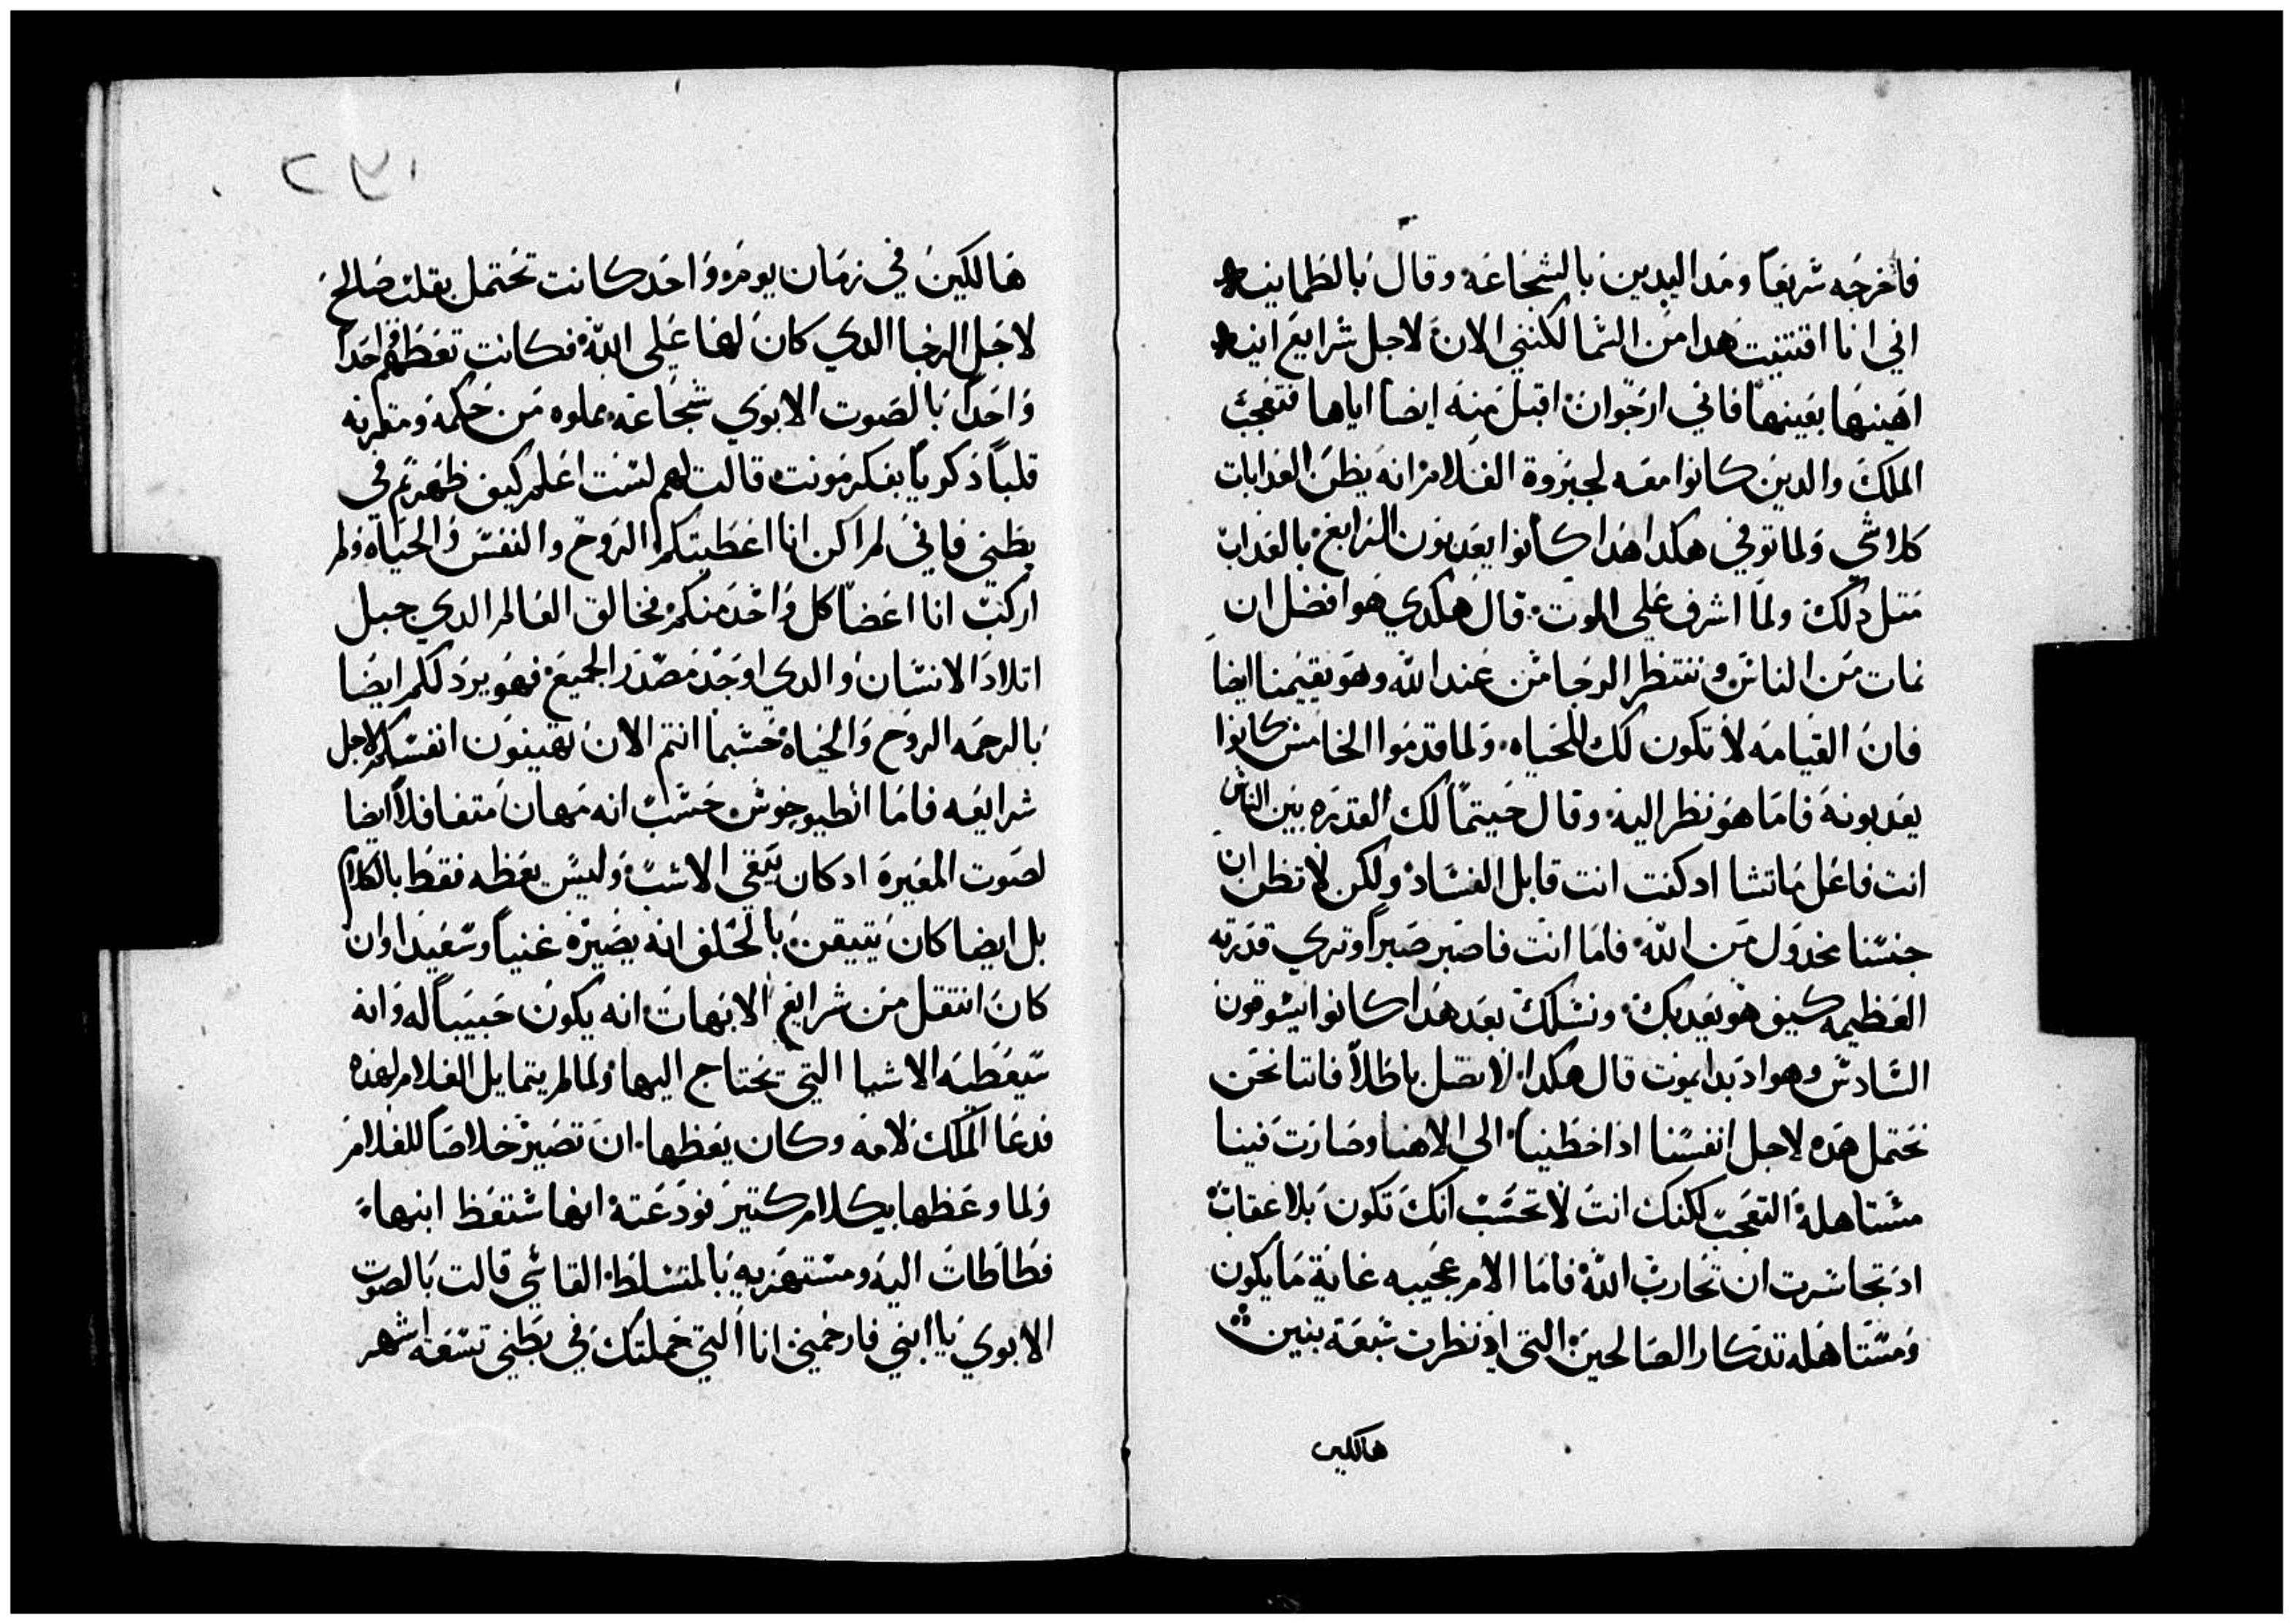 فاخرجه شريعاً ومد اليدين بالشجاعه وقال بالطمانيه
اني انا اقتنيت هدا من الشما لكنني الان لاجل شرايع الله
اهينها بعينها فاني ارجوان اقبل منه ايضا اياها فتعجب
الملك والدين كانوا معه لجبروة الغلام انه يظن العدابات
كلا شي ولما توفي هكدا هدا كانوا يعدبون الرابع بالعداب
متل دلك ولما اشرف علي الموت قال هكدي هو افضل ان
نمات من الناس وننتظر الرجا من عند الله وهو يقيمنا ايضا
فان القيامه لا تكون لك للحياه ولما قدموا الخامس كانوا
يعدبونه فاما هو نظر اليه وقال حيتما لك القدره بين الناس
انت فاعل ما تشا اد كنت انت قابل الفساد ولكن لا تظن ان
جنسنا مخدول من الله فاما انت فاصبر صبراً وتري قدرته
العظيمه كيف هو يعدبك ونسلك بعد هدا كانوا يسوقون
السادس وهو اد بدا يموت قال هكدا لا تضل باطلاً فاننا نحن
نحتمل هده لاجل انفسنا ادا خطينا الي الاهنا وصارت فينا
مستاهلة التعجب لكنك انت لا تحسب انك تكون بلا عقاب
اد تجاسرت ان تحارب الله فاما الام عجيبه غاية ما يكون
ومستاهله تدكار الصالحين التي اد نظرت سبعة بنين
هالكين
١٧٢
هالكين في زمان يوم واحد كانت تحتمل بقلب صالح
لاجل الرجا الدي كان لها علي الله فكانت تعظهم احداً
واحداً بالصوت الابوي شجاعه مملوه من حكمه ومقرنه
قلباً دكورياً بفكر مونت قالت لهم لست اعلم كيف ظهرتم في
بطني فاني لم اكن انا اعطيتكم الروح والنفس والحياة ولم
اركب انا اعضا كل واحد منكم نخالق العالم الدي جبل
اتلاد الانسان والدي اوجد مصدر الجميع فهو يرد لكم ايضا
بالرحمه الروح والحياة حسبما انتم الان تهينون انفسكم لاجل
شرايعه فاما انطيوخوش حسب انه مهان متغافلاً ايضا
لصوت المغيرة اد كان يبقي الاشب وليس يعظه فقط بالكلام
بل ايضا كان يتيقن بالحلف انه يصيره غنياً وسعيدا وان
كان انتقل من شرايع الابهات انه يكون حبيباً له وانه
سيعطيه الاشيا التي تحتاج اليها ولما لم يتمايل الغلام لهده
فدعا الملك لامه وكان يعظها ان تصير خلاصاً للغلام
ولما وعظها بكلام كتير فودعته انها ستعظ ابنها
فطاطات اليه ومستهزيه بالمتسلط القاسي قالت بالصوت
الابوي يا ابني فارحميني انا التي حملتك في بطني تسعة اشهر